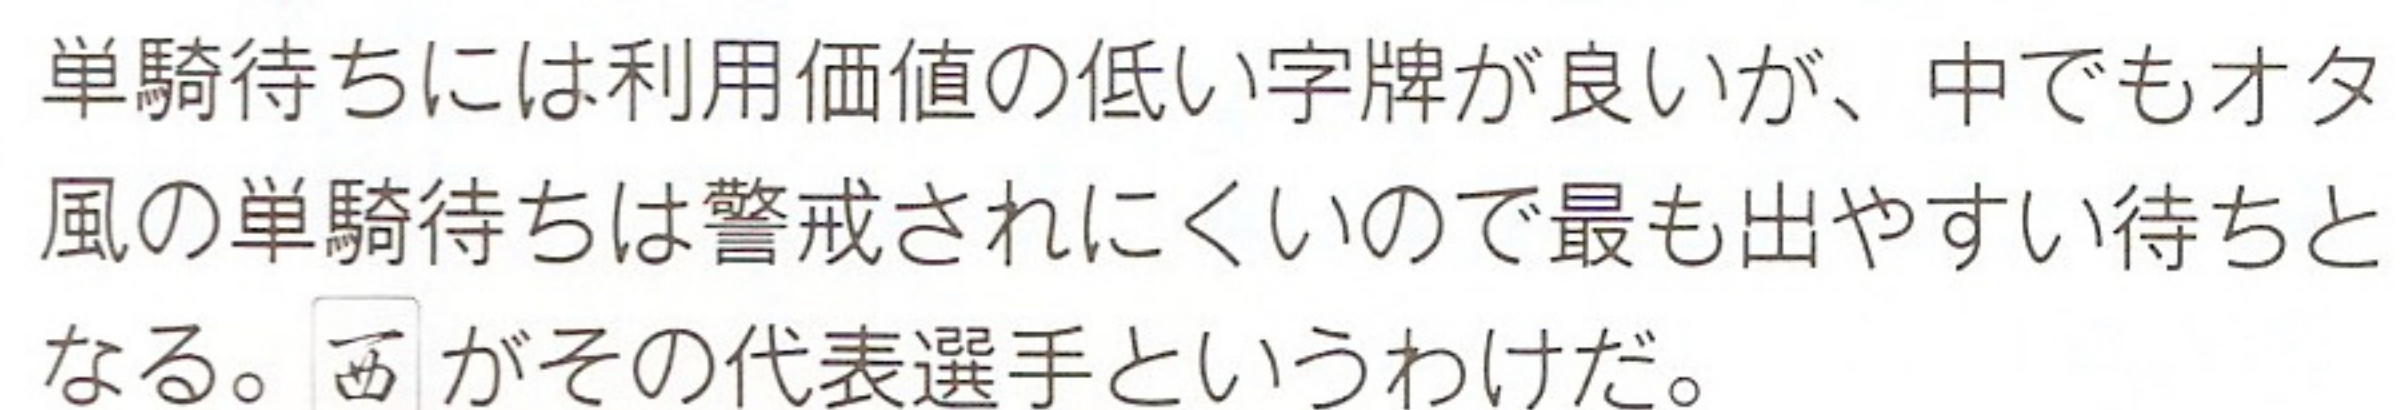 単騎待ちには利用価値の低い字牌が良いが、中でもオタ
風の単騎待ちは警戒されにくいので最も出やすい待ちと
なる。西がその代表選手というわけだ。